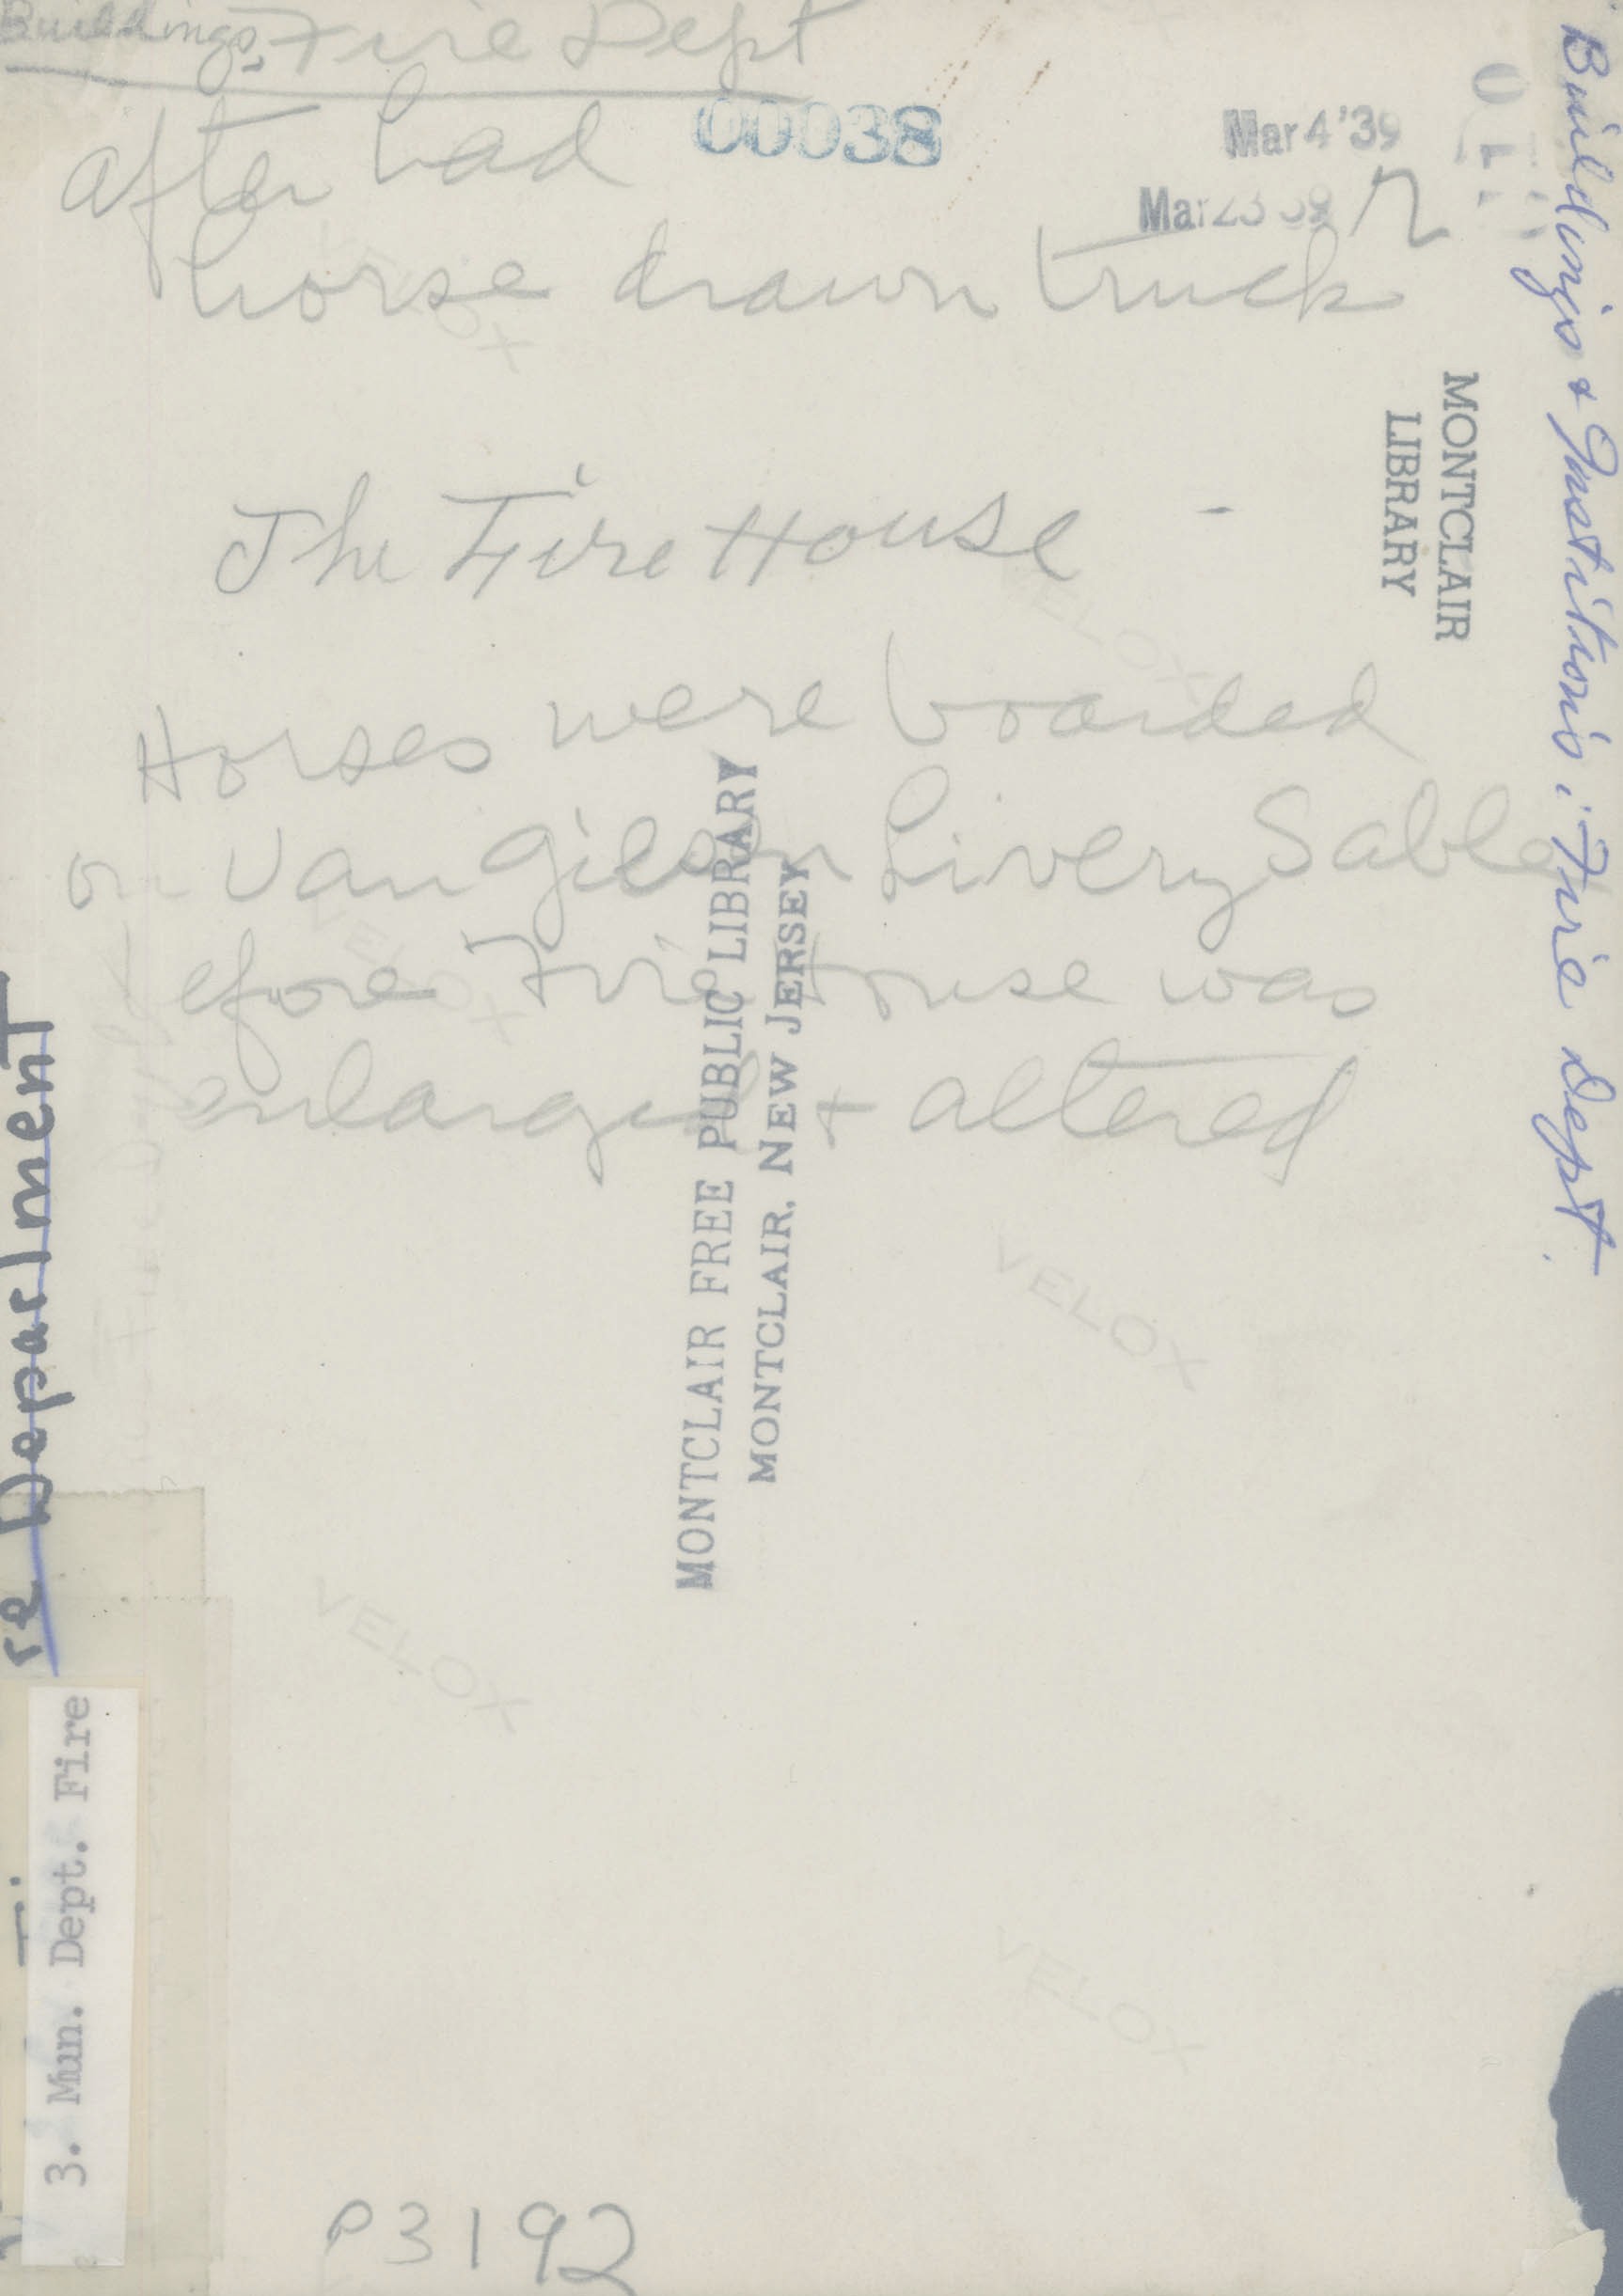 Buildings. Fire Dept
00038
Mar 4 '39
Mar 23 39
after had
horse drawn truck
The Fire House -
Horses were boarded
Van Gieson Livery Sable
efore Fire House was
enlarged & altered
MONTCLAIR
LIBRARY
Buildings & Institutions: Fire Dept.
MONTCLAIR FREE PUBLIC LIBRARY
MONTCLAIR, NEW JERSEY
re Department
3. Mun. Dept. Fire
P3192
VELOX
VELOX
VELOX
VELOX
VELOX
VELOX